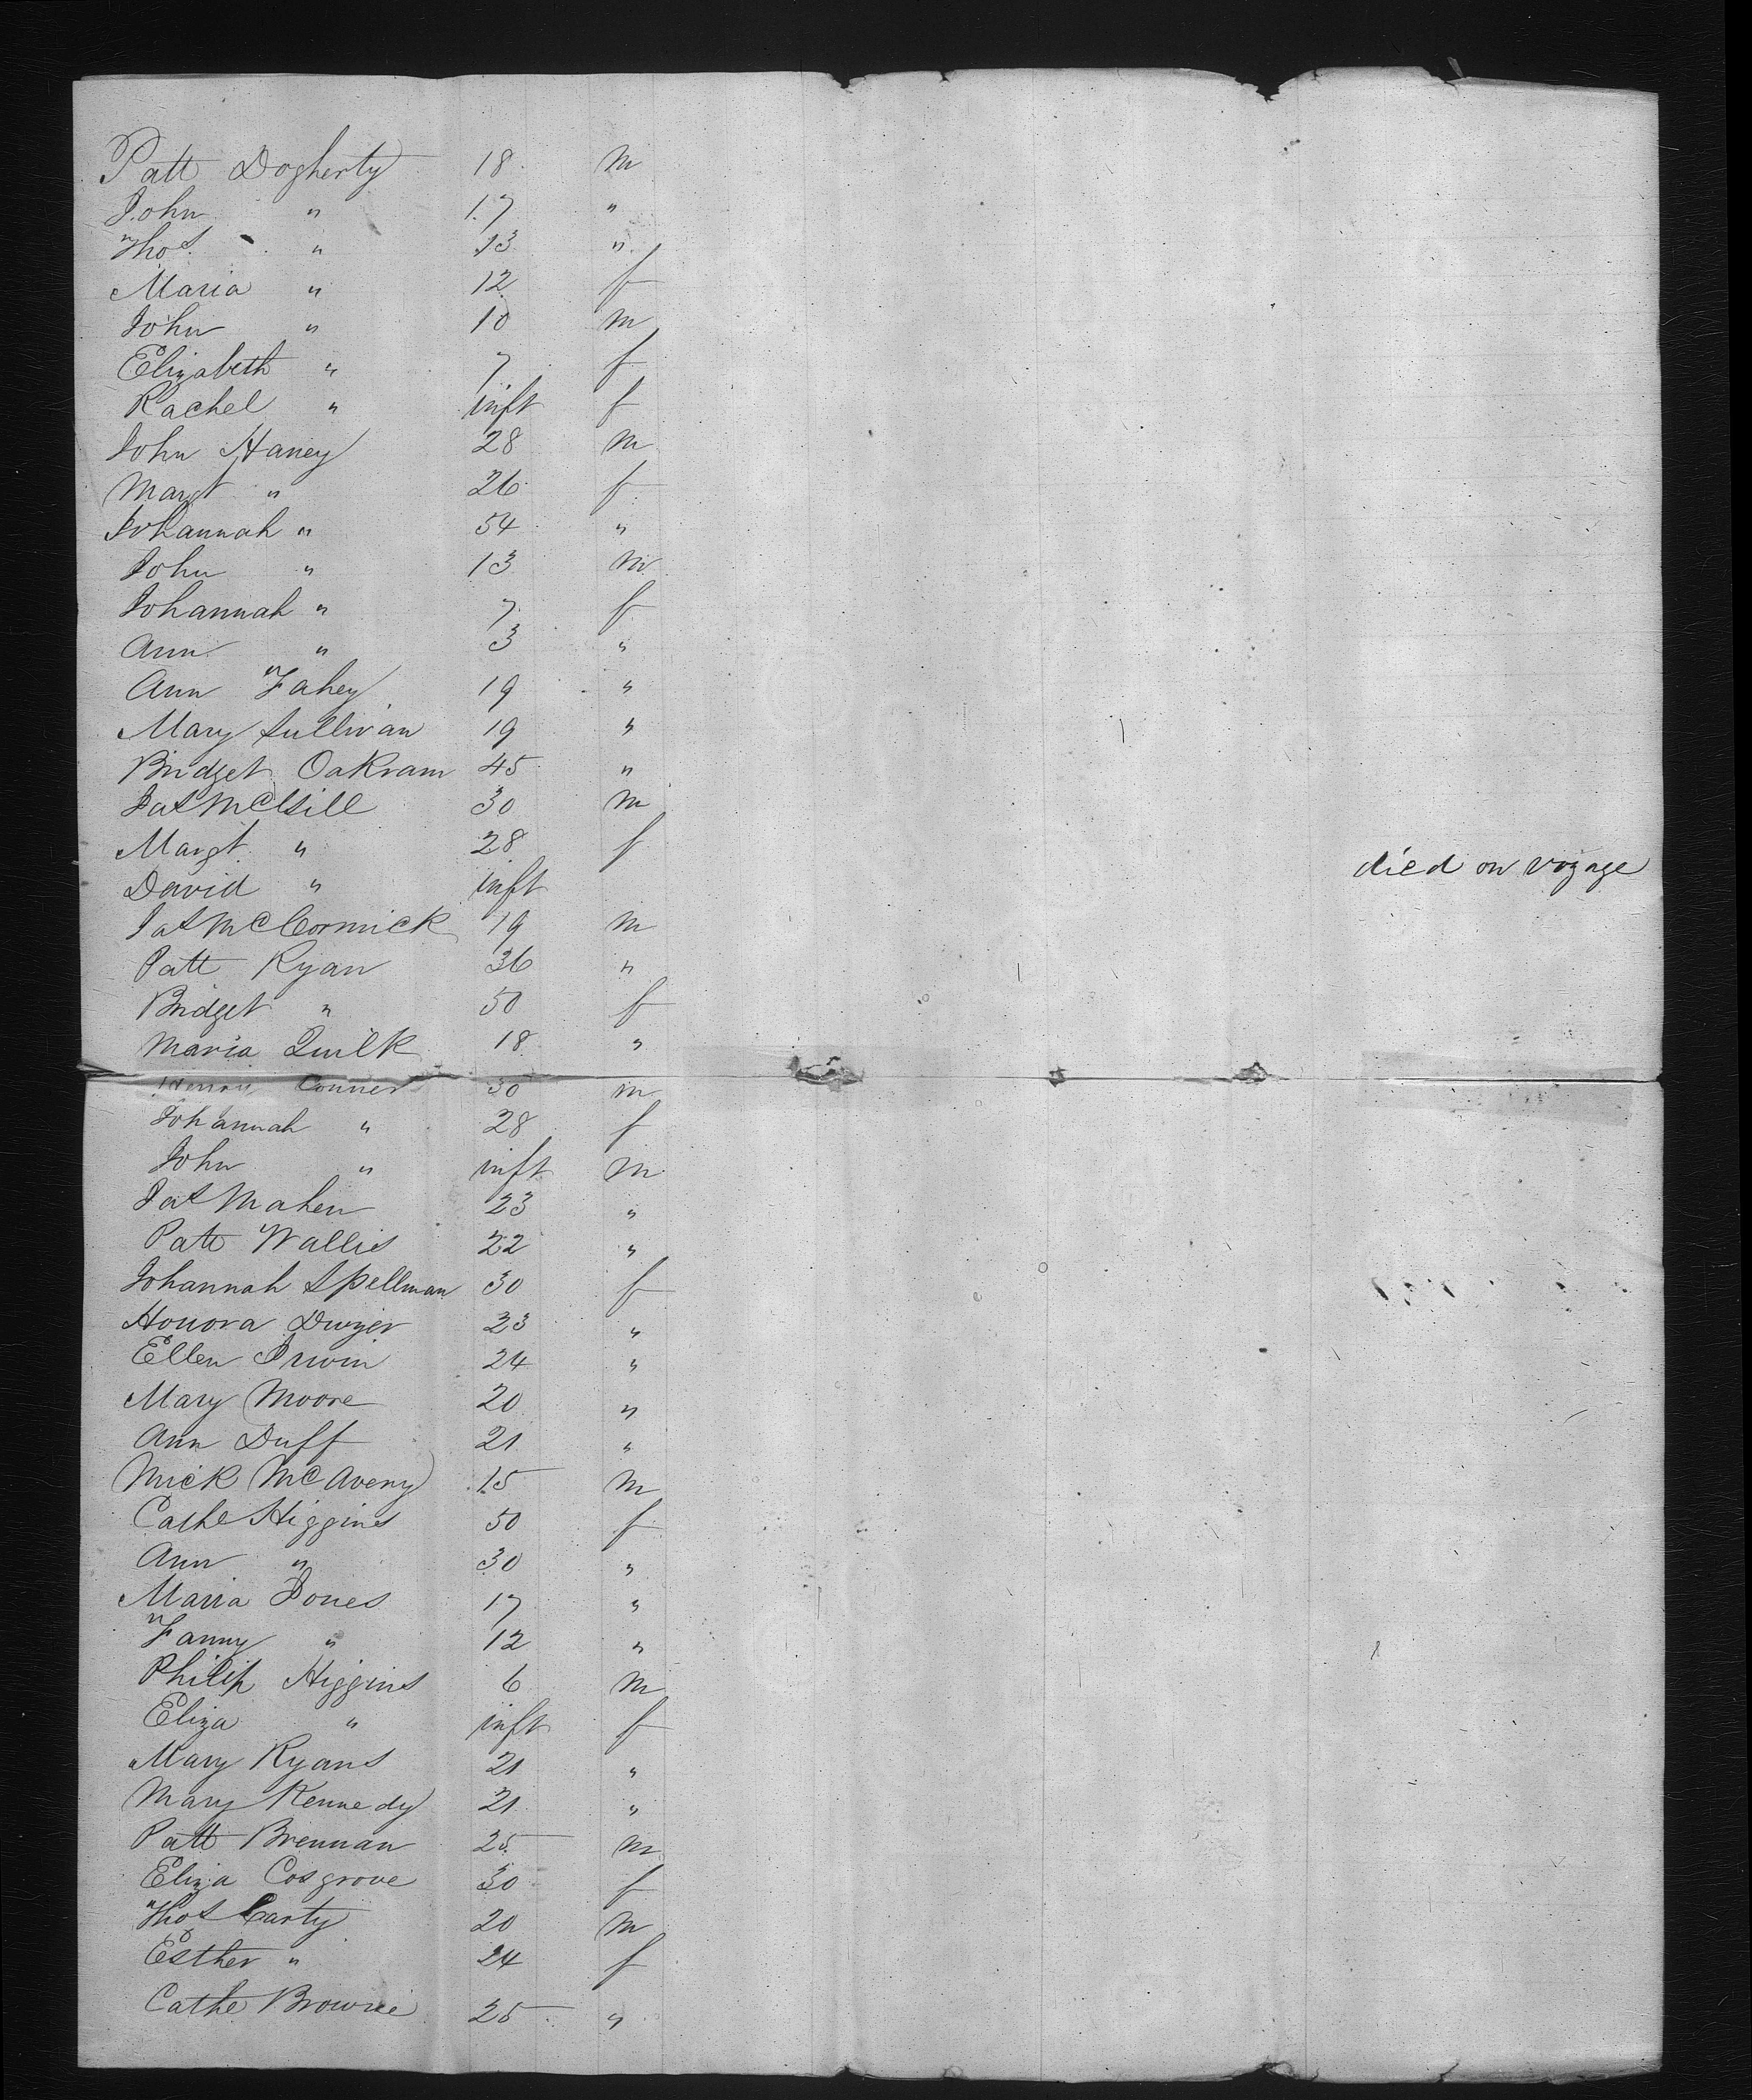 Patt Dogherty 18 m
John " 17 "
Thos " 13 "
Maria " 12 f
John " 10 m
Elizabeth " 7 f
Rachel " inft f
John Haney 28 m
Margt " 26 f
Johannah " 54 "
John " 13 m
Johannah " 7 f
Ann " 3 "
Ann Fahey 19 "
Mary Sullivan 19 "
Bridget Oakram 45 "
Jas 30 m
Margt " 28 f
David " inft died on voyage
Jas McCormick 19 m
Patt Ryan 36 "
Bridget " 50 f
Maria Quilk 18 "
Conners 30 m
Johannah " 28 f
John " inft m
Jas Mahen 23 "
Patt Wallis 22 "
Johannah Spellman 30 f
Honora Dwyer 23 "
Ellen Irwin 24 "
Mary Moore 20 "
Ann Duff 21 "
Mick McAveny 15 m
Cathe Higgins 50 f
Ann " 30 "
Maria Jones 17 "
Fanny " 12 "
Philip Higgins 6 m
Eliza " inft f
Mary Ryans 21 "
Mary Kennedy 21 "
Patt Brennan 25 m
Eliza Cosgrove 30 f
Thos Carty 20 m
Esther " 24 f
Cathe Browne 25 "